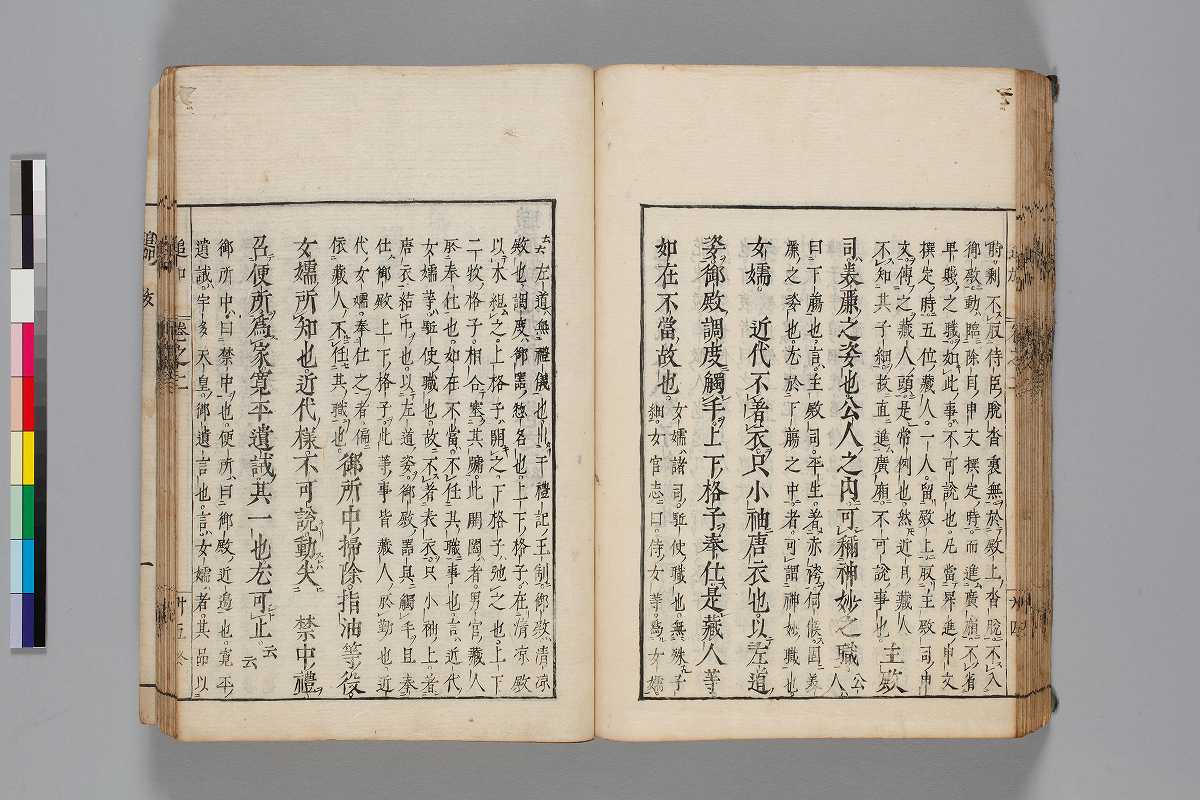 時剰不及侍臣脱沓裏無於殿上沓脱不入
御殿動臨除目申文撰定時而進廣廂不省
早職之職如此事不可説也凡當昇進申文
撰定時五位藏人一人留殿上取主殿司申
文傳之藏人頭是常例也然近日藏人
不知其子細故直進廣廂不可説事也 主殿
司表裹之姿也公人之内可稱神妙之職 公人
曰下﨟也言主殿司平生着赤袴伺候圍義
廉之姿也尤於下﨟之中者可謂神妙職也
女嬬 近代不著衣只小袖唐衣也以左道
姿御殿調度觸手上下格子奉仕是藏人等
如在不當故也 女嬬諸司駈使職也無殊子
細女官志曰侍女等為女嬬
左道無禮儀也出于禮記王制御殿清凉
殿也調度御器惣各也上下格子在清凉殿
以木組之上格子開之下格子弛之也上下
二枚格子相合塞其牖此開闔者男官藏人
所奉仕也如在不當不任其職事也言近代
女嬬等駈使職也故不着表衣只小袖上着
唐衣結巾也以左道姿御殿器具觸手且奉
仕御殿上下格子此等事皆藏人於勤也近
代女嬬奉仕之者偏
依藏人不任其職也 御所中掃除指油等役
女嬬所知也近代樣不可説動失 禁中禮
召便所為家寛平遺誡其一也尤可止云云
御所中曰禁中也便所曰御殿近邊也寛平
遺誡宇多天皇御遺言也言女嬬者其品以
追加 卷之二 廿五終